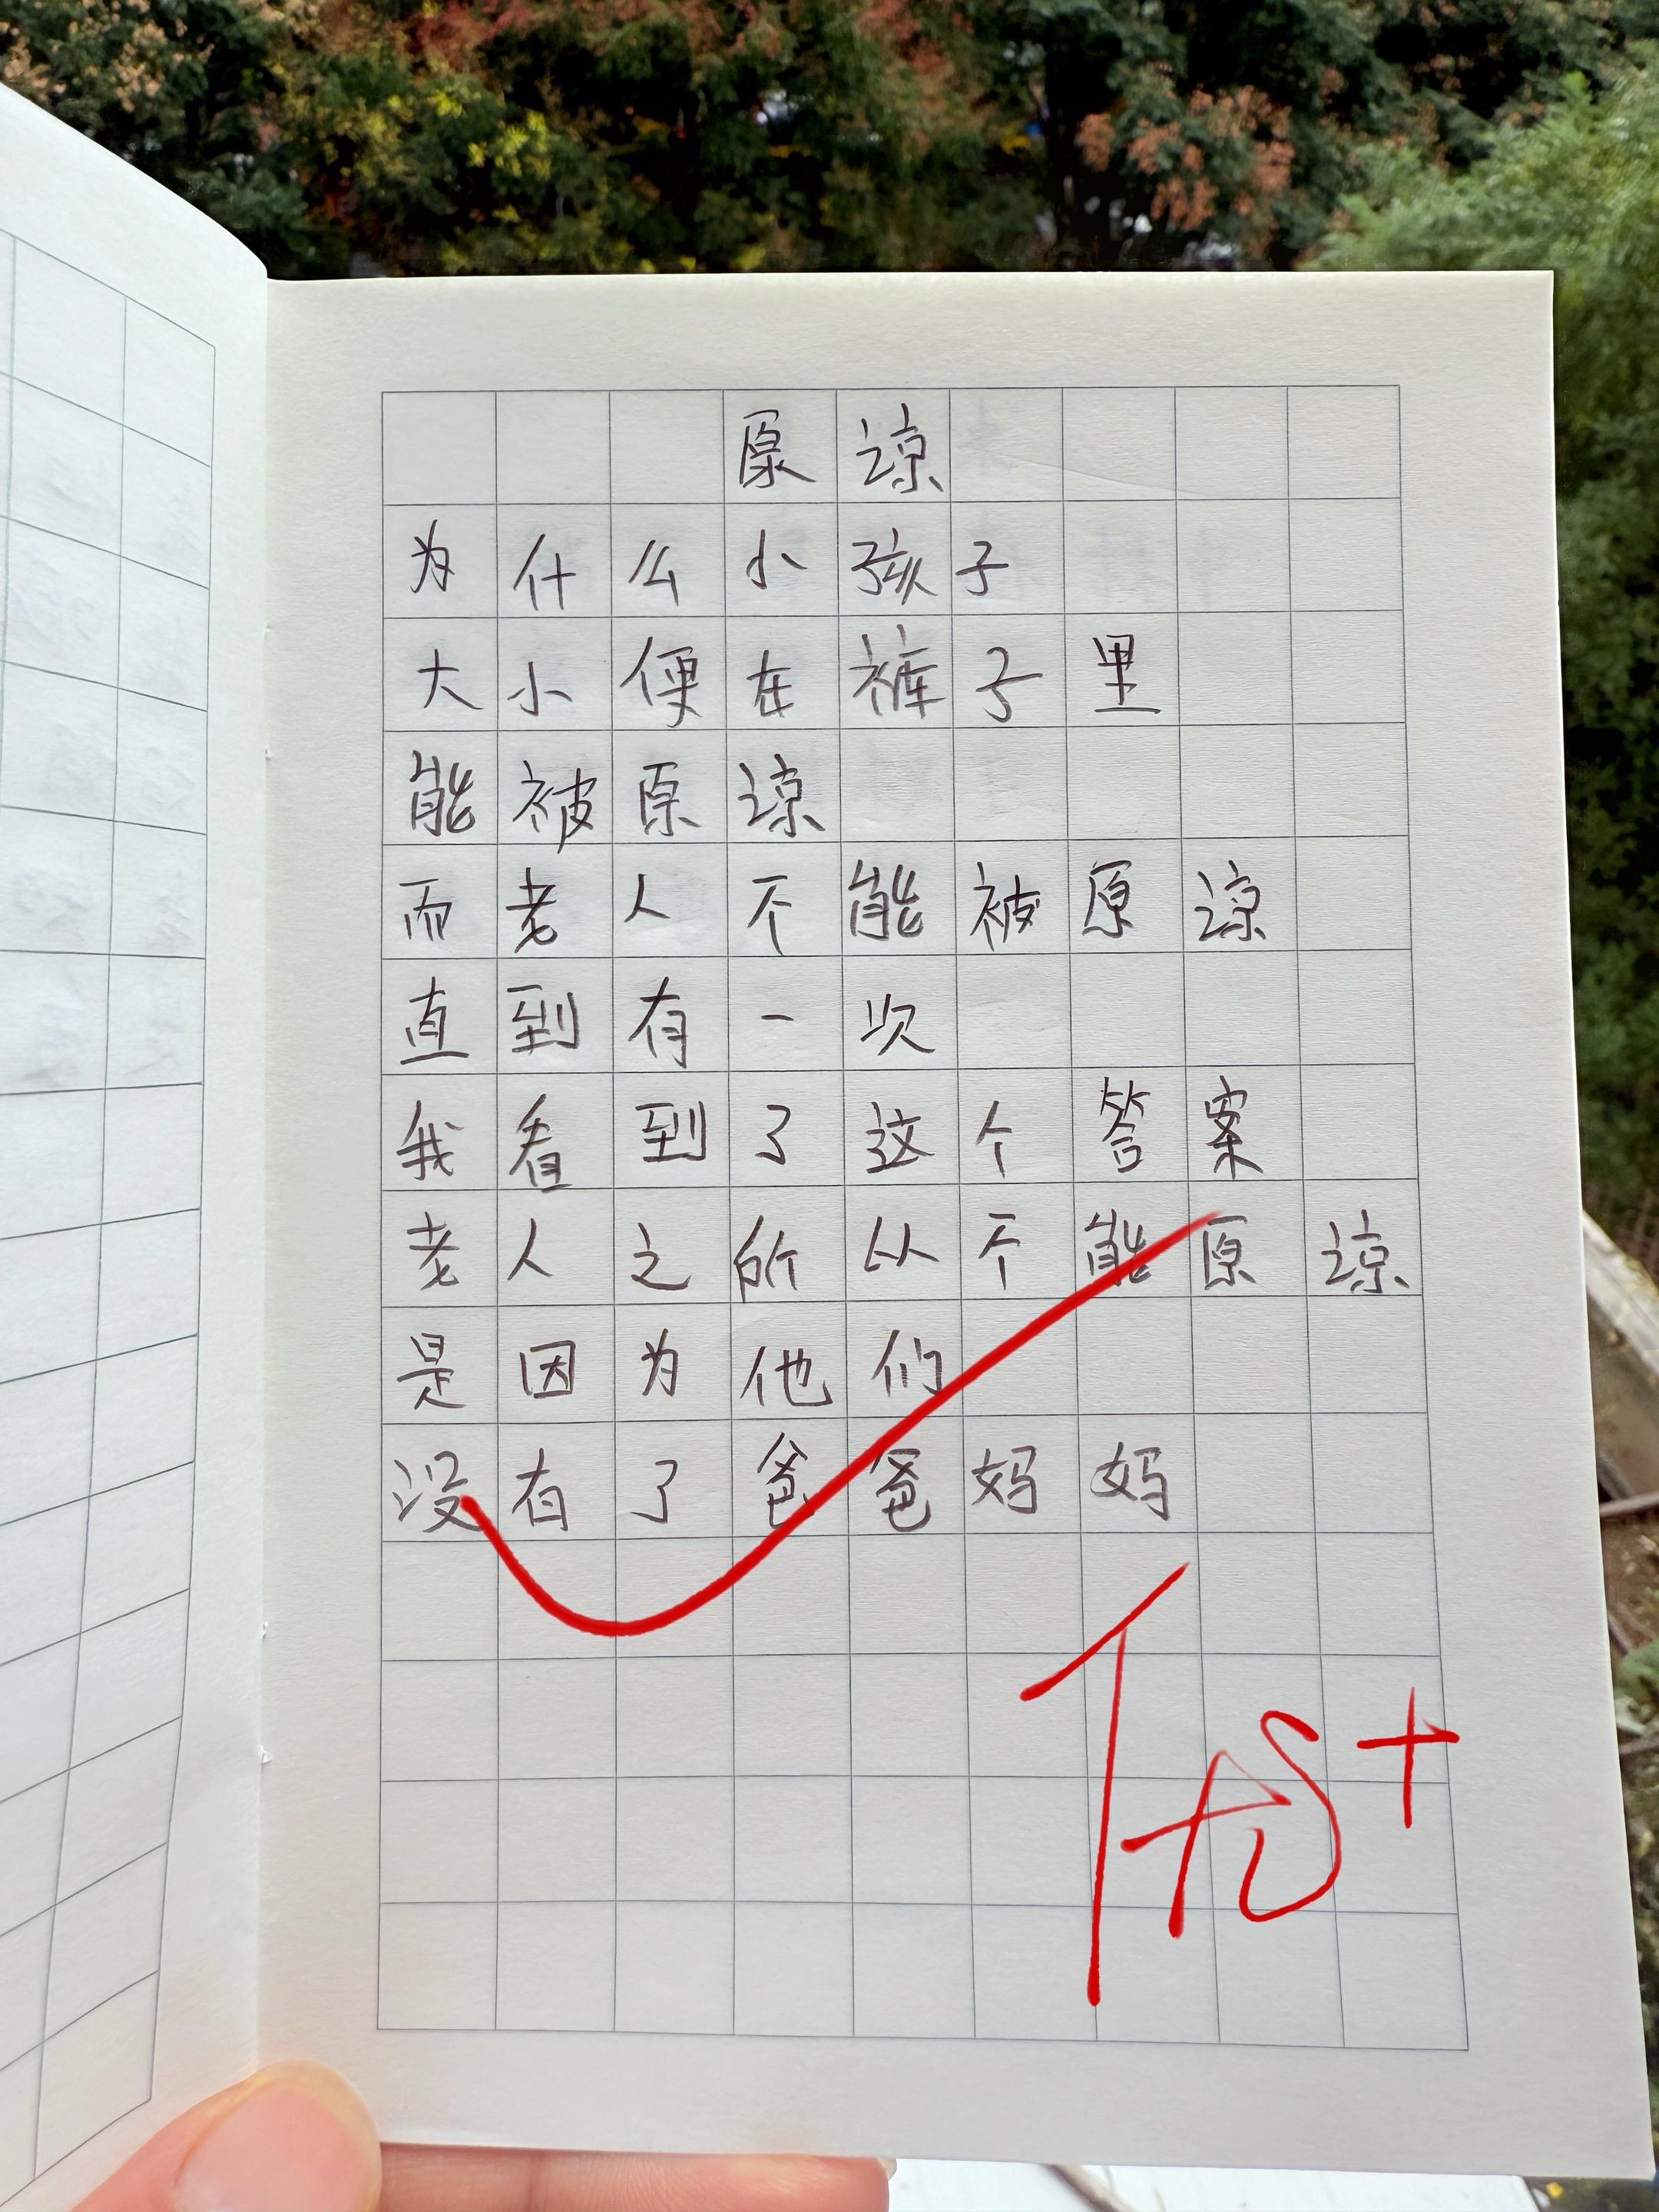 原谅
为什么小孩子
大小便在裤子里
能被原谅
而老人不能被原谅
直到有一次
我看到了这个答案
老人之所以不能原谅
是因为他们
没有了爸爸妈妈